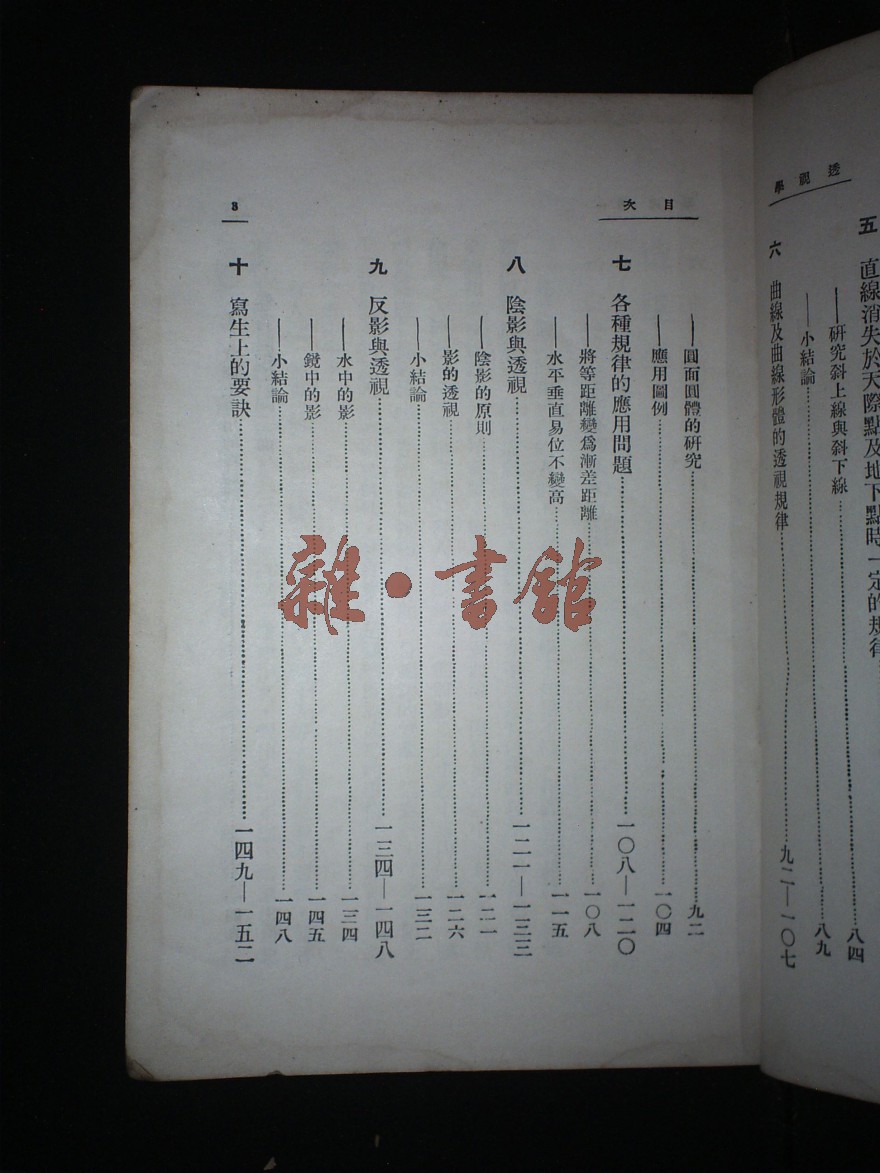 透視學
五 直線消失於天際點及地下點時一定的規律
——研究斜上線與斜下線……八四
——小結論……八九
六 曲線及曲線形體的透視規律……九二—一〇七
目次
——圓面圓體的研究……九二
——應用圖例……一〇四
七 各種規律的應用問題……一〇八—一二〇
——將等距離變爲漸差距離……一〇八
——水平垂直易位不變高……一一五
八 陰影與透視……一二一—一三三
——陰影的原則……一二一
——影的透視……一二六
——小結論……一三二
九 反影與透視……一三四—一四八
——水中的影……一三四
——鏡中的影……一四五
——小結論……一四八
十 寫生上的要訣……一四九—一五二
3
雜·書館